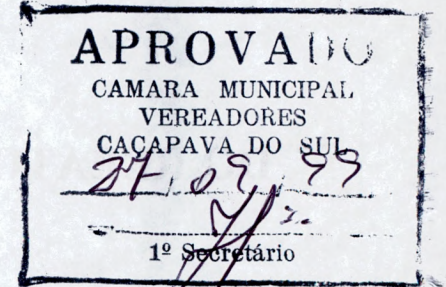 APROVADO
CAMARA MUNICIPAL
VEREADORES
CAÇAPAVA DO SUL
27, 09, 99
1º Secretário